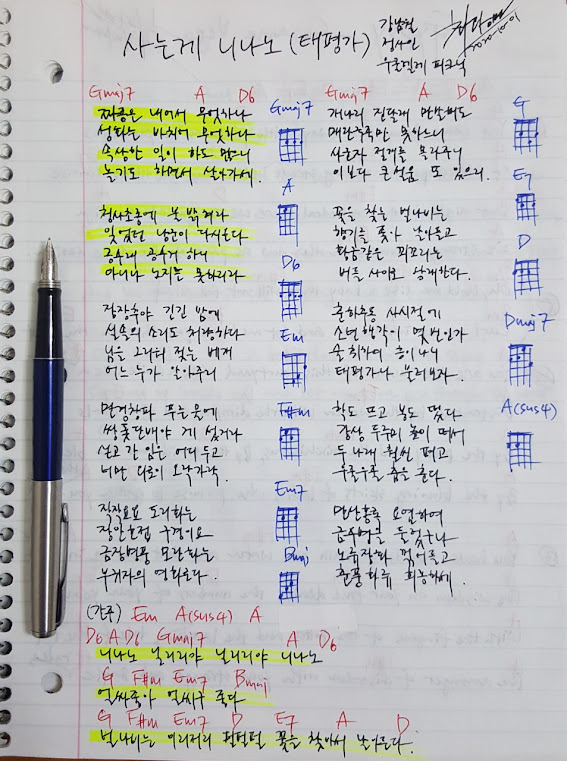 사는게 니나노 (태평가)
강남철
정사인
우쿨렐레 피크닉
2020-10-01
Gmaj7 A D6
짜증은 내어서 무엇하나
성화는 바치어 무엇하나
속상한 일이 하도 많으니
놀기도 하면서 살아가세.
청사초롱에 불 밝혀라
잊었던 낭군이 다시온다
공수래 공수거 하니
아니나 노지는 못하리라
장장추야 긴긴 밤에
실솔의 소리도 처량하다
님을 그리워 젖는 베개
어느 누가 알아주리
만경창파 푸른 물에
쌍돛단배야 게 섰거라
싣고 간 임은 어디두고
너만 외로이 오락가락.
직장요요 도리화는
장안호접 구경이요
금장병풍 모란화는
부귀자의 영화로다.
Gmaj7
A
D6
Em
F#m
Em7
Bmaj
Gmaj7 A D6
개나리 진달래 만발해도
매란국죽만 못하느니
사군자 절개를 몰라주니
이보다 큰 설움 또 있으리.
꽃을 찾는 벌나비는
향기를 쫓아 날아들고
황금같은 꾀꼬리는
버들 사이로 왕래한다.
춘하추동 사시절에
소년행락이 몇번인가
술 취하여 흥이나니
태평가나 불러보자.
학도 뜨고 봉도 떴다
강상 두루미 높이 떠서
두 나래 훨씬 펴고
우줄우줄 춤을 춘다.
만산홍록 요염하여
금수병풍 둘렀구나
노류장화 꺾어들고
춘풍화류 희롱하세.
G
E7
D
Dmaj7
A(sus4)
(간주) Em A(sus4) A
D6 A D6 Gmaj7 A D6
니나노 닐리리야 닐리리야 니나노
G F#m Em7 Bmaj
얼싸좋아 얼씨구 좋다
G F#m Em7 D E7 A D
벌나비는 이리저리 펄펄펄 꽃을 찾아서 날아든다.